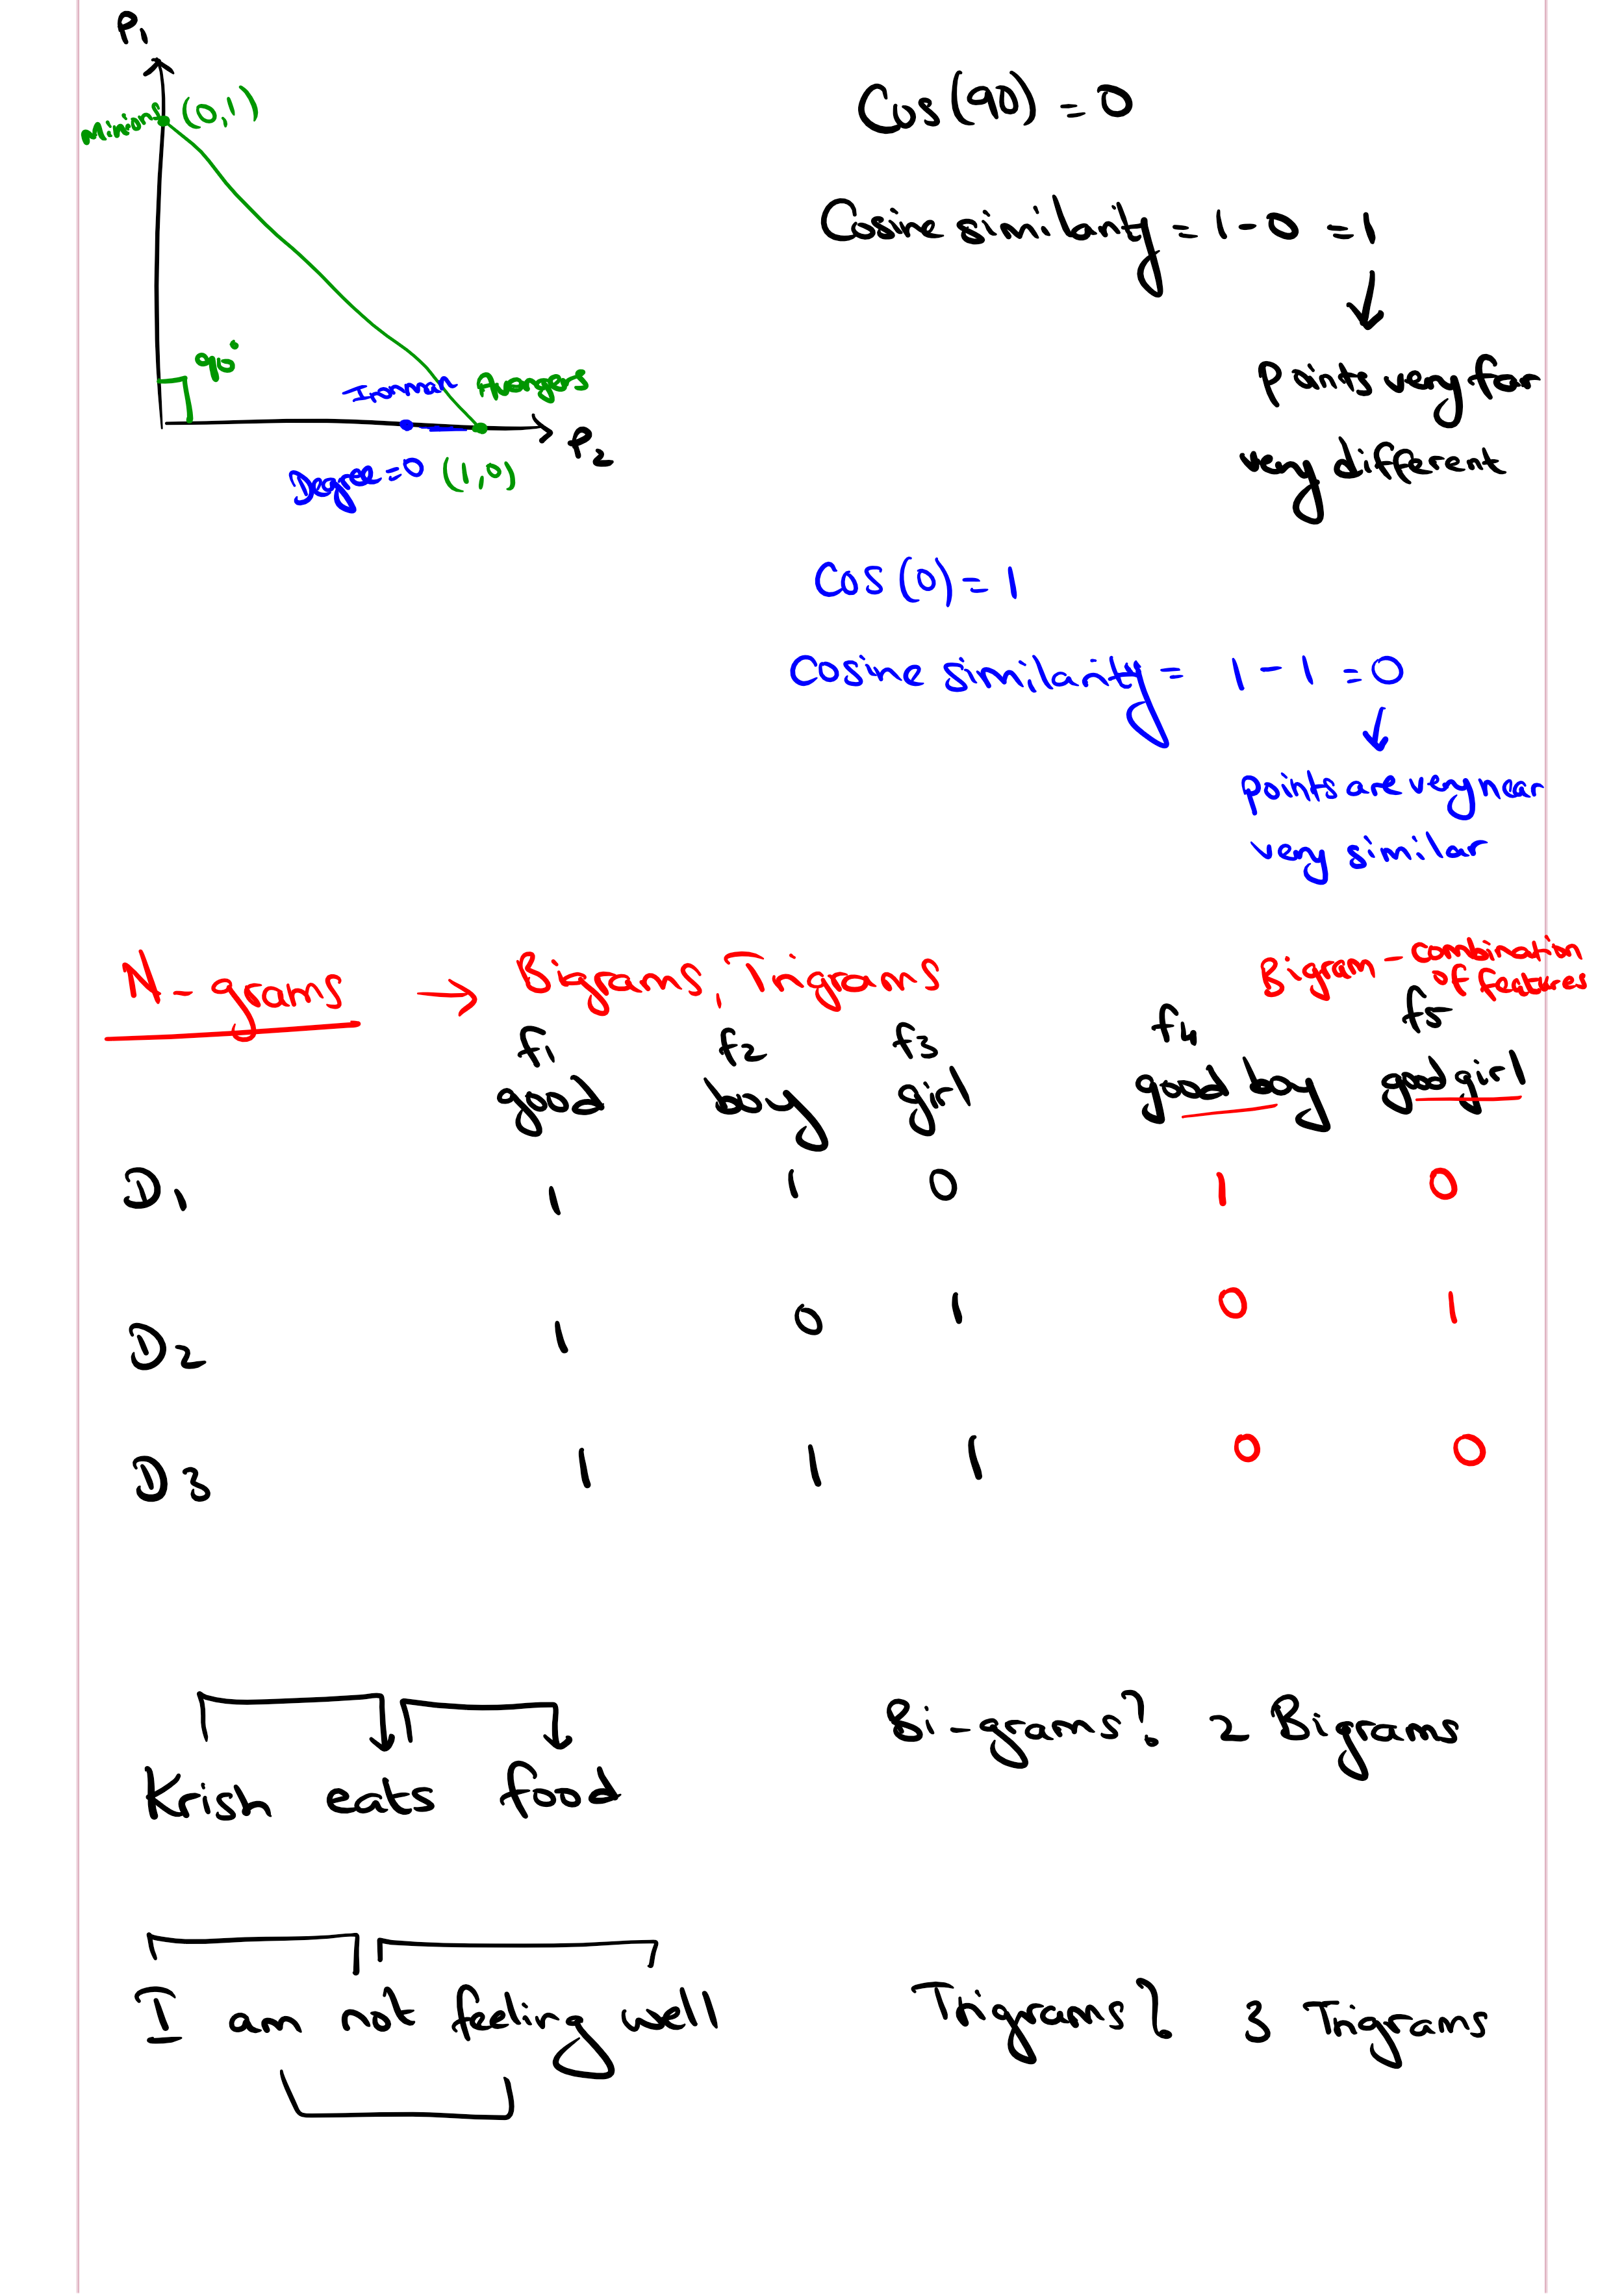 P1
Minions (0,1)
90°
Ironman Avengers
P2
Degree=0 (1,0)
Cos(90) = 0
Cosine similarity = 1 - 0 = 1
Points very far
very different
Cos (0) = 1
Cosine similarity = 1 - 1 = 0
points are very near
very similar
N-grams → Bigrams, Trigrams
Bigram - combination
of features
f1 f2 f3 f4 f5
good boy girl good boy good girl
D1 1 1 0 1 0
D2 1 0 1 0 1
D3 1 1 1 0 0
Krish eats food
Bi-grams? 2 Bigrams
I am not feeling well
Trigrams? 3 Trigrams